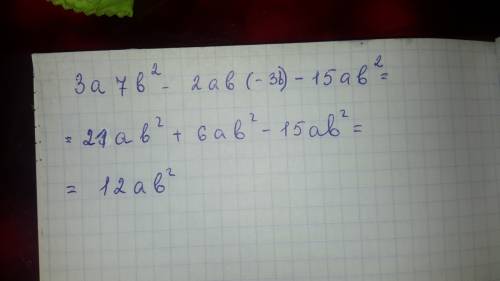 3a 7b² - 2ab (-3b) - 15ab² =
= 21ab² + 6ab² - 15ab² =
= 12ab²